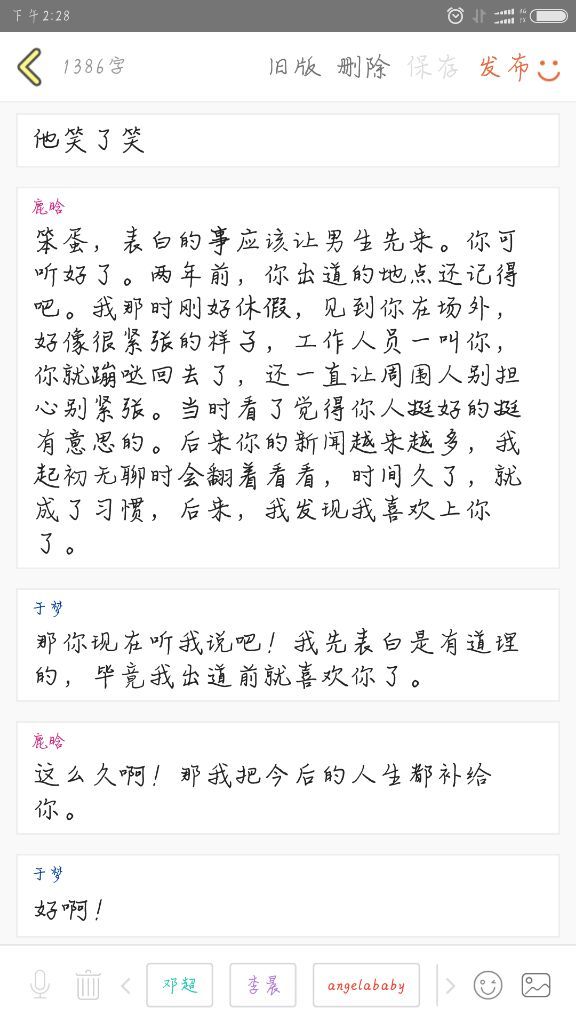 下午2:28
1386字
旧版 删除 保存 发布
他笑了笑
鹿晗
笨蛋，表白的事应该让男生先来。你可
听好了。两年前，你出道的地点还记得
吧。我那时刚好休假，见到你在场外，
好像很紧张的样子，工作人员一叫你，
你就蹦哒回去了，还一直让周围人别担
心别紧张。当时看了觉得你人挺好的挺
有意思的。后来你的新闻越来越多，我
起初无聊时会翻着看看，时间久了，就
成了习惯，后来，我发现我喜欢上你
了。
于梦
那你现在听我说吧！我先表白是有道理
的，毕竟我出道前就喜欢你了。
鹿晗
这么久啊！那我把今后的人生都补给
你。
于梦
好啊！
邓超 李晨 angelababy